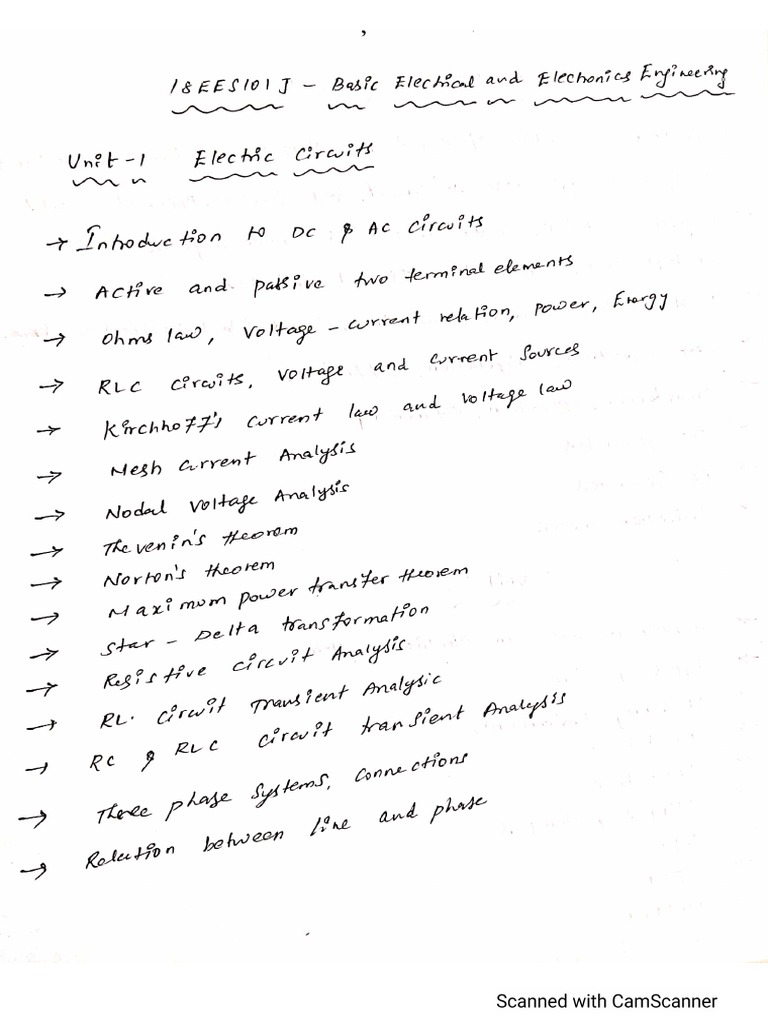 18EES101J - Basic Electrical and Electronics Engineering
Unit-1 Electric Circuits
→ Introduction to DC & AC circuits
→ Active and passive two terminal elements
→ Ohms law, Voltage - current relation, power, Energy
→ RLC circuits, voltage and current sources
→ Kirchhoff's current law and voltage law
→ Mesh current Analysis
→ Nodal voltage Analysis
→ Thevenin's theorem
→ Norton's theorem
→ Maximum power transfer theorem
→ Star - Delta transformation
→ Resistive circuit Analysis
→ RL. circuit Transient Analysis
→ RC & RLC circuit transient Analysis
→ Three phase systems, connections
→ Relation between line and phase
Scanned with CamScanner